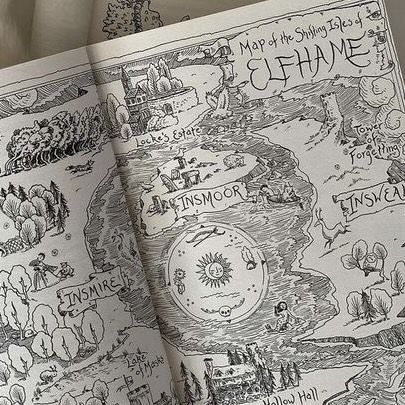 Map of the Shifting Isles of
ELFHAME
Locke's Estate
Tower
of
Forgetting
INSMOOR
INSWEAL
INSMIRE
Lake
of Masks
Hollow Hall